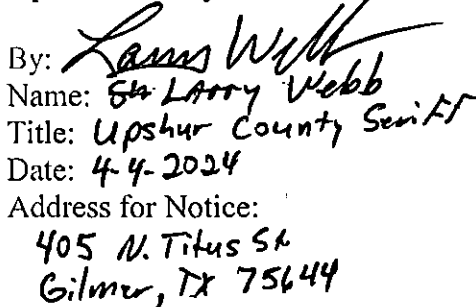 By: Larry Webb
Name: Larry Webb
Title: Upshur County Seriff
Date: 4-4-2024
Address for Notice:
405 N. Titus St
Gilmer, TX 75644